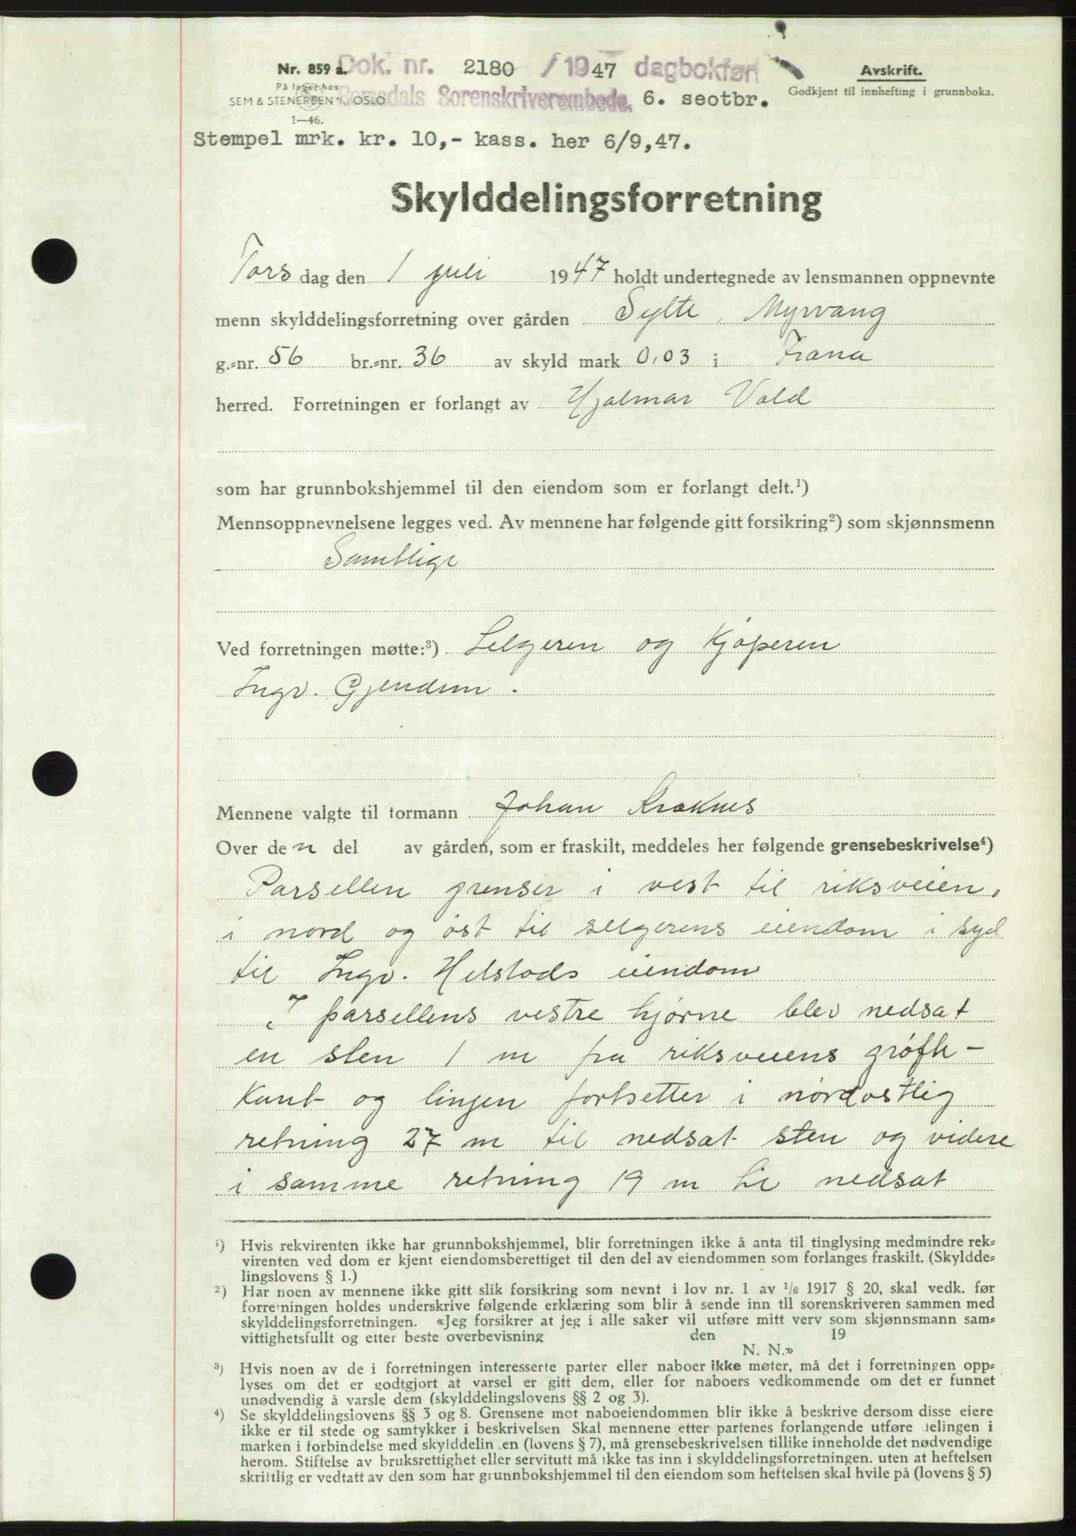 Nr. 859 a. Dok. nr. 2180 / 1947 dagbokført Avskrift.
På lager hos Godkjent til innhefting i grunnboka.
SEM & STENERSEN A/S, OSLO Romsdals Sorenskriverembede. 6. seotbr.
1—46.
Stempel mrk. kr. 10,- kass. her 6/9,47.
Skylddelingsforretning
Tors dag den 1 juli 1947 holdt undertegnede av lensmannen oppnevnte
menn skylddelingsforretning over gården Sylte, Myrvang
g.-nr. 56 br.-nr. 36 av skyld mark 0,03 i Fræna
herred. Forretningen er forlangt av Hjalmar Vold
som har grunnbokshjemmel til den eiendom som er forlangt delt.¹)
Mennsoppnevnelsene legges ved. Av mennene har følgende gitt forsikring²) som skjønnsmenn
Samtlige
Ved forretningen møtte:³) Selgeren og kjøperen
Ingv. Gjendem.
Mennene valgte til formann Johan Kraknes
Over den del av gården, som er fraskilt, meddeles her følgende grensebeskrivelse⁴)
Parsellen grenser i vest til riksveien,
i nord og øst til selgerens eiendom i syd
til Ingv. Helstads eiendom
I parsellens vestre hjørne blev nedsat
en sten 1 m fra riksveiens grøft-
kant og linjen fortsetter i nordøstlig
retning 27 m til nedsat sten og videre
i samme retning 19 m til nedsat
¹) Hvis rekvirenten ikke har grunnbokshjemmel, blir forretningen ikke å anta til tinglysing medmindre rek-
virenten ved dom er kjent eiendomsberettiget til den del av eiendommen som forlanges fraskilt. (Skyldde-
lingslovens § 1.)
²) Har noen av mennene ikke gitt slik forsikring som nevnt i lov nr. 1 av 1/6 1917 § 20, skal vedk. før
forretningen holdes underskrive følgende erklæring som blir å sende inn til sorenskriveren sammen med
skylddelingsforretningen. «Jeg forsikrer at jeg i alle saker vil utføre mitt verv som skjønnsmann sam-
vittighetsfullt og etter beste overbevisning den 19
N. N.»
³) Hvis noen av de i forretningen interesserte parter eller naboer ikke møter, må det i forretningen opp-
lyses om det er godtgjort at varsel er gitt dem, eller for naboers vedkommende om det er funnet
unødvendig å varsle dem (skylddelingslovens §§ 2 og 3).
⁴) Se skylddelingslovens §§ 3 og 8. Grensene mot naboeiendommen blir ikke å beskrive dersom disse eiere
ikke er til stede og samtykker i beskrivelsen Skal mennene etter partenes forlangende utføre delingen i
marken i forbindelse med skylddelingen (lovens § 7), må grensebeskrivelsen tillike inneholde det nødvendige
herom. Stiftelse av bruksrettighet eller servitutt må ikke tas inn i skylddelingsforretningen. uten at heftelsen
skriftlig er vedtatt av den som har grunnbokshjemmel til den eiendom som heftelsen skal hvile på (lovens § 5)